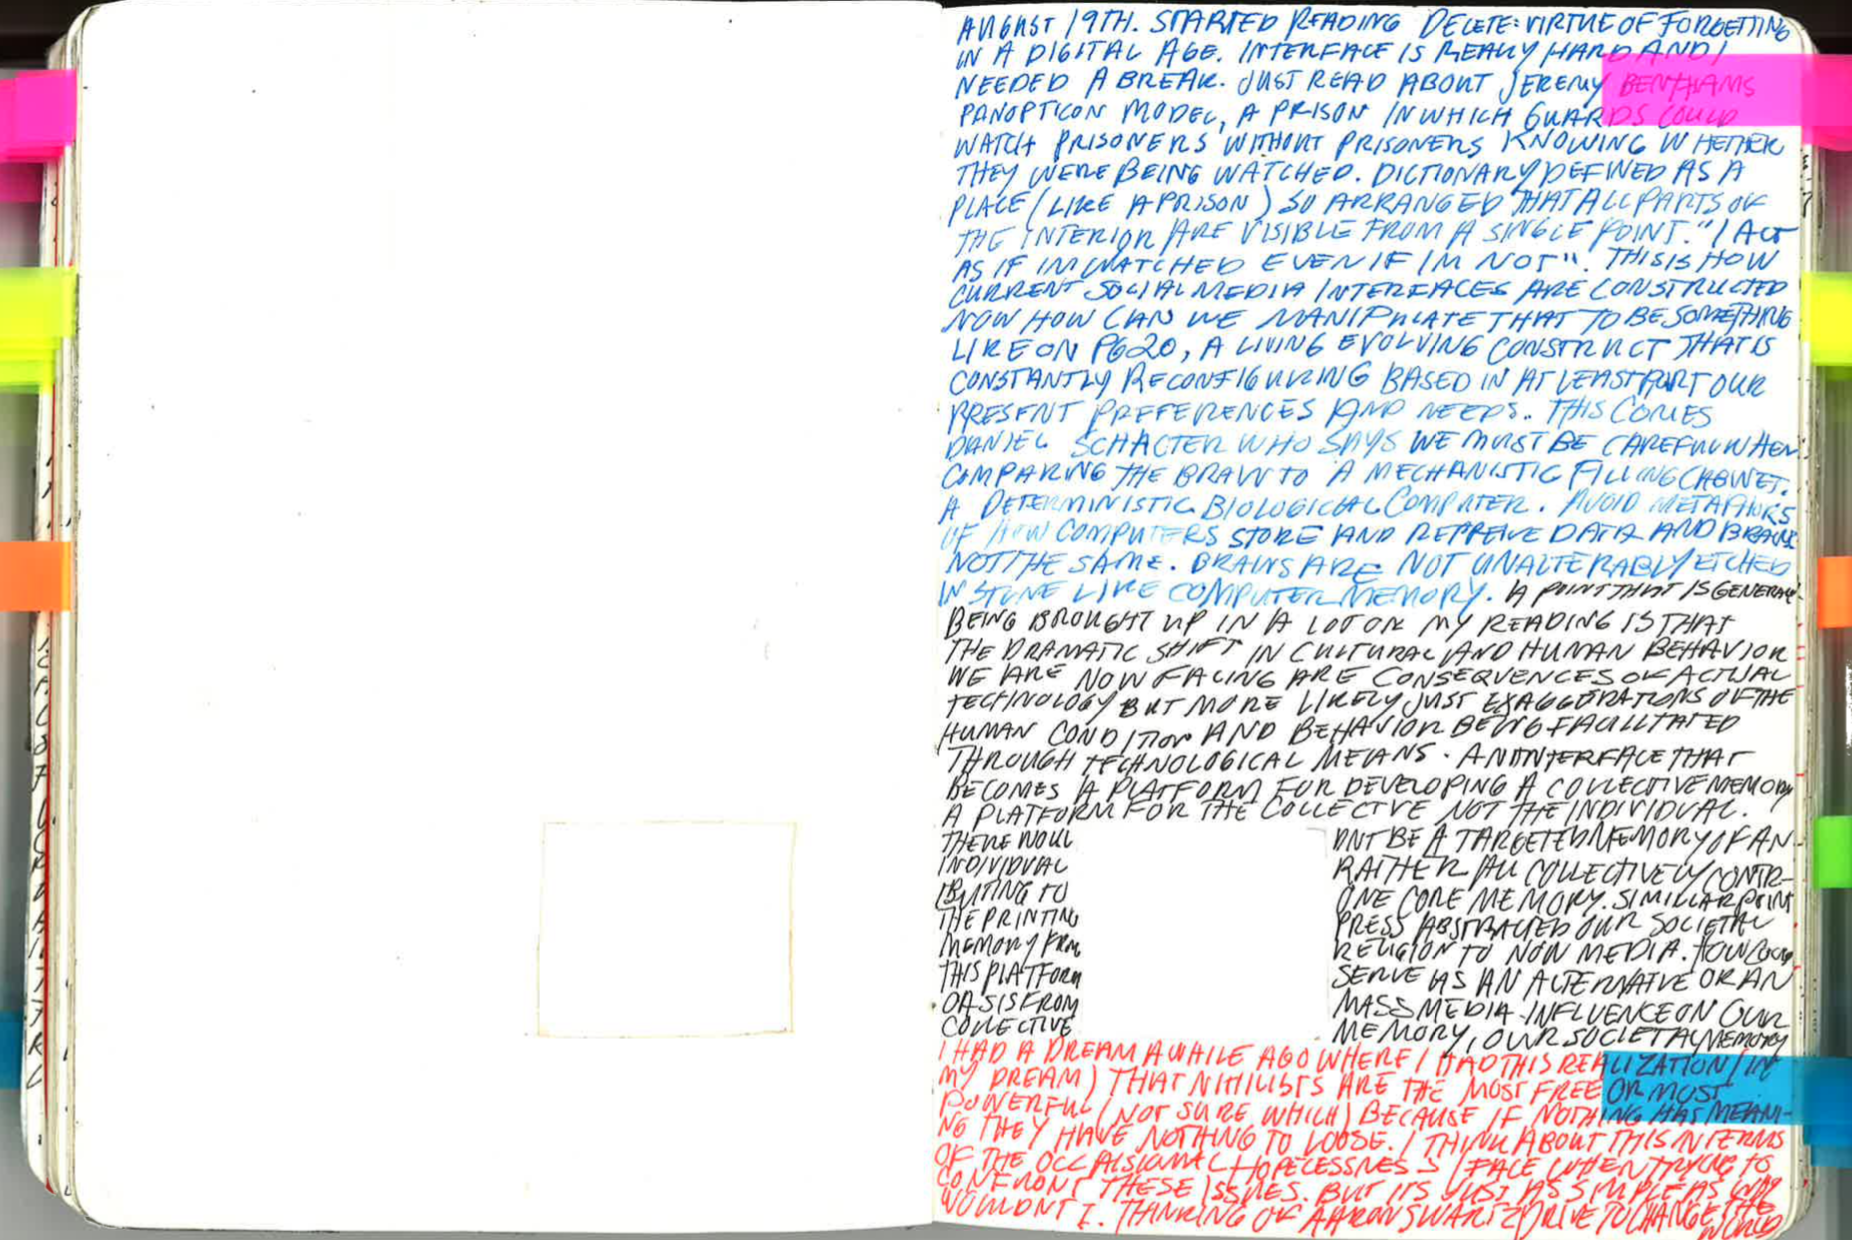 AUGUST 19TH. STARTED READING DELETE: VIRTUE OF FORGETTING
IN A DIGITAL AGE. INTERFACE IS REALLY HARD AND I
NEEDED A BREAK. JUST READ ABOUT JEREMY BENTHAMS
PANOPTICON MODEL, A PRISON IN WHICH GUARDS COULD
WATCH PRISONERS WITHOUT PRISONERS KNOWING WHETHER
THEY WERE BEING WATCHED. DICTIONARY DEFINED AS A
PLACE (LIKE A PRISON) SO ARRANGED THAT ALL PARTS OF
THE INTERIOR ARE VISIBLE FROM A SINGLE POINT. "I ACT
AS IF IM WATCHED EVEN IF IM NOT". THIS IS HOW
CURRENT SOCIAL MEDIA INTERFACES ARE CONSTRUCTED
NOW HOW CAN WE MANIPULATE THAT TO BE SOMETHING
LIKE ON PG20, A LIVING EVOLVING CONSTRUCT THAT IS
CONSTANTLY RECONFIGURING BASED IN AT LEAST PART OUR
PRESENT PREFERENCES AND NEEDS. THIS COMES
DANIEL SCHACTER WHO SAYS WE MUST BE CAREFUL WHEN
COMPARING THE BRAIN TO A MECHANISTIC FILLING CABINET.
A DETERMINISTIC BIOLOGICAL COMPUTER. AVOID METAPHORS
OF HOW COMPUTERS STORE AND RETREIVE DATA AND BRAINS
NOT THE SAME. BRAINS ARE NOT UNALTERABLY ETCHED
IN STONE LIKE COMPUTER MEMORY. A POINT THAT IS GENERALLY
BEING BROUGHT UP IN A LOT OF MY READING IS THAT
THE DRAMATIC SHIFT IN CULTURAL AND HUMAN BEHAVIOR
WE ARE NOW FACING ARE CONSEQUENCES OF ACTUAL
TECHNOLOGY BUT MORE LIKELY JUST EXAGGERATIONS OF THE
HUMAN CONDITION AND BEHAVIOR BEING FACILITATED
THROUGH TECHNOLOGICAL MEANS. AN INTERFACE THAT
BECOMES A PLATFORM FOR DEVELOPING A COLLECTIVE MEMORY
A PLATFORM FOR THE COLLECTIVE NOT THE INDIVIDUAL.
THERE WOUL DNT BE A TARGETED MEMORY OF AN
INDIVIDUAL RATHER ALL COLLECTIVELY CONTR-
IBUTING TO ONE CORE MEMORY. SIMILLAR POINT
THE PRINTING PRESS ABSTRACTED OUR SOCIETAL
MEMORY FROM RELIGION TO NOW MEDIA. HOW COULD
THIS PLATFORM SERVE AS AN ALTERNATIVE OR AN
OASIS FROM MASS MEDIA INFLUENCE ON OUR
COLLECTIVE MEMORY, OUR SOCIETAL MEMORY
I HAD A DREAM AWHILE AGO WHERE I HAD THIS REALIZATION (IN
MY DREAM) THAT NIHILISTS ARE THE MOST FREE OR MOST
POWERFUL (NOT SURE WHICH) BECAUSE IF NOTHING HAS MEANI-
NG THEY HAVE NOTHING TO LOOSE. I THINK ABOUT THIS IN TERMS
OF THE OCCAISIONAL HOPELESSNESS I FACE WHEN TRYING TO
CONFRONT THESE ISSUES. BUT ITS JUST AS SIMPLE AS WHY
WOULDNT I. THINKING OF AARON SWARTZ DRIVE TO CHANGE THE
WORLD